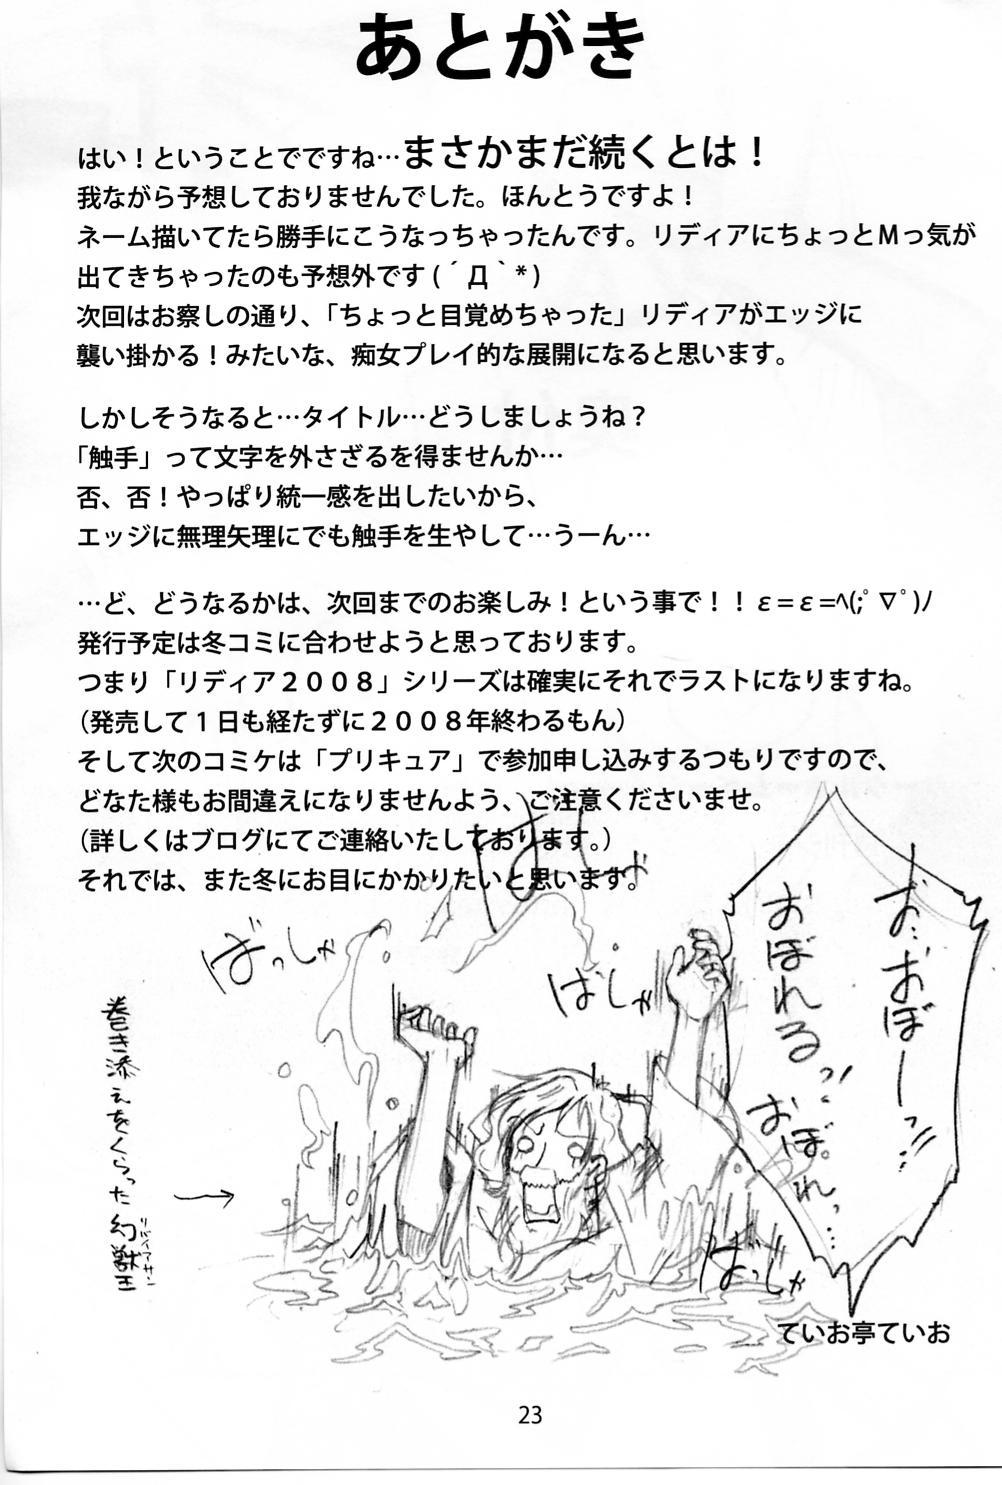 あとがき
はい！ということでですね…まさかまだ続くとは！
我ながら予想しておりませんでした。ほんとうですよ！
ネーム描いてたら勝手にこうなっちゃったんです。リディアにちょっとＭっ気が
出てきちゃったのも予想外です (´Д｀*)
次回はお察しの通り、「ちょっと目覚めちゃった」リディアがエッジに
襲い掛かる！みたいな、痴女プレイ的な展開になると思います。
しかしそうなると…タイトル…どうしましょうね？
「触手」って文字を外さざるを得ませんか…
否、否！やっぱり統一感を出したいから、
エッジに無理矢理にでも触手を生やして…うーん…
…ど、どうなるかは、次回までのお楽しみ！という事で！！ε=ε=ﾍ(;ﾟ∇ﾟ)ﾉ
発行予定は冬コミに合わせようと思っております。
つまり「リディア２００８」シリーズは確実にそれでラストになりますね。
（発売して１日も経たずに２００８年終わるもん）
そして次のコミケは「プリキュア」で参加申し込みするつもりですので、
どなた様もお間違えになりませんよう、ご注意くださいませ。
（詳しくはブログにてご連絡いたしております。）
それでは、また冬にお目にかかりたいと思います。
お、おぼーっ!!
おぼれるっ!
おぼれっ…
ばしゃ
ばっしゃ
ばしゃ
ばっしゃ
巻き添えをくらった幻獣王
リディアサン
→
ていお亭ていお
23